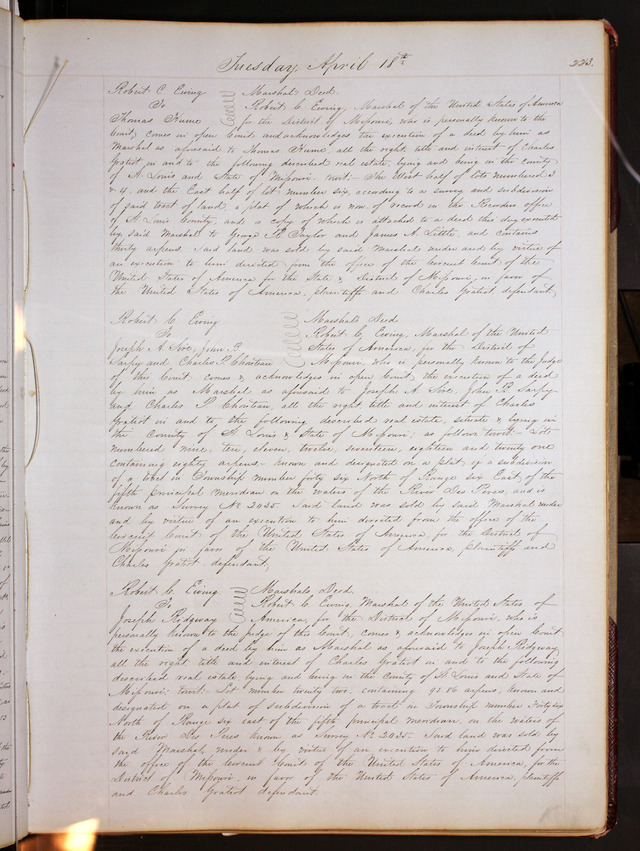 Tuesday, April 18th
223.
Robert C. Ewing Marshals Deed.
To Robert C. Ewing, Marshal of the United States of America
Thomas Hume for the District of Missouri, who is personally known to the
Court, comes in open Court and acknowledges the execution of a deed by him as
Marshal as aforesaid to Thomas Hume, all the right title and interest of Charles
Gratiot in and to the following described real estate, lying and being in the county
of St. Louis and State of Missouri towit:- The West half of lots numbered 3
& 4, and the East half of lot number six, according to a survey and subdivision
of said tract of land, a plat of which is now of record in the Recorders office
of St. Louis County, and a copy of which is attached to a deed this day executed
by said Marshal to George R. Taylor and James A. Little, and contains
thirty arpens. Said land was sold by said Marshal under and by virtue of
an execution to him directed from the office of the Circuit Court of the
United States of America for the State & District of Missouri, in favor of
the United States of America, plaintiffs and Charles Gratiot, defendant,
Robert C. Ewing Marshals Deed
To Robert C. Ewing, Marshal of the United
Joseph A. Sire, John B. States of America, for the District of
Sarpy and Charles P. Chouteau Missouri, who is personally known to the Judge
of this Court, comes & acknowledges in open Court, the execution of a deed
by him as Marshal as aforesaid to Joseph A. Sire, John B. Sarpy
and Charles P. Chouteau, all the right title and interest of Charles
Gratiot in and to the following described real estate, situate & being in
the County of St. Louis & State of Missouri; as follows towit:- Lots
numbered nine, ten, eleven, twelve, seventeen, eighteen and twenty one
containing eighty arpens - known and designated on a plat, of a subdivision
of a tract in Township number forty six North of Range six East, of the
fifth principal meridian on the waters of the River Des Peres, and is
known as Survey No 2035. Said land was sold by said Marshal under
and by virtue of an execution to him directed from the office of the
Circuit Court of the United States of America for the District of
Missouri in favor of the United States of America, plaintiffs and
Charles Gratiot defendant,
Robert C. Ewing Marshals Deed
To Robert C. Ewing, Marshal of the United States of
Joseph Ridgway America, for the District of Missouri, who is
personally known to the judge of this Court, comes & acknowledges in open Court
the execution of a deed by him as Marshal as aforesaid to Joseph Ridgway
all the right title and interest of Charles Gratiot in and to the following
described real estate lying and being in the County of St. Louis and State of
Missouri: towit: Lot number twenty two, containing 92.06 arpens, known and
designated on a plat of subdivision of a tract in Township number Forty six
North of Range six east of the fifth principal meridian, on the waters of
the River Des Peres known as Survey No 2035. Said land was sold by
said Marshal, under & by virtue of an execution to him directed from
the office of the Circuit Court of the United States of America, for the
District of Missouri, in favor of the United States of America, plaintiff
and Charles Gratiot defendant.